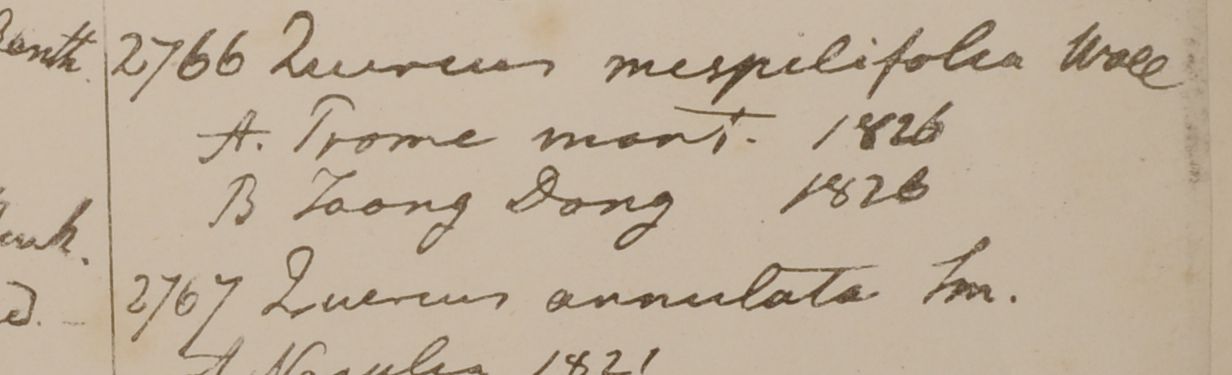 Benth. 2766 Quercus mespilifolia Wall
A. Prome mont. 1826
B Taong Dong 1826
2767 Quercus annulata Sm.
A Napalia 1821